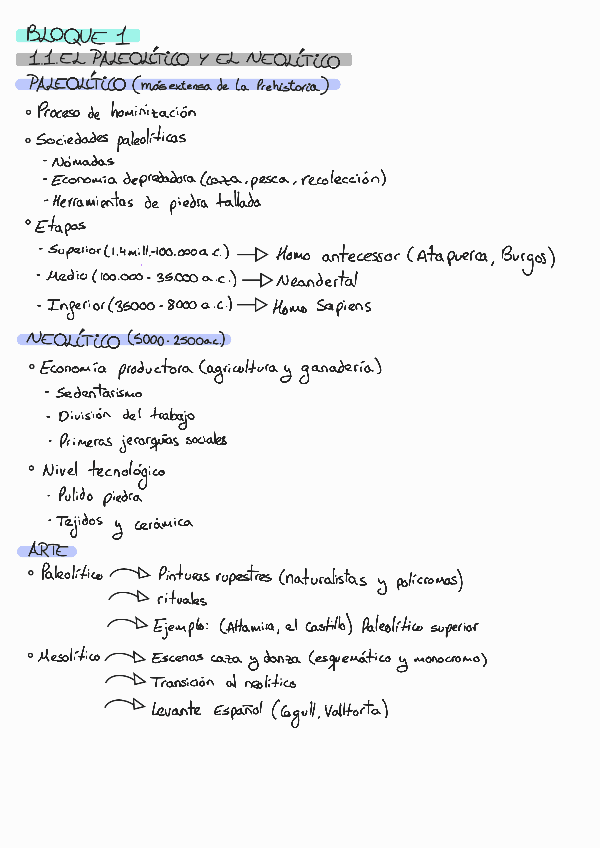 BLOQUE 1
1.1. EL PALEOLÍTICO Y EL NEOLÍTICO
PALEOLÍTICO (más extensa de la Prehistoria)
° Proceso de hominización
° Sociedades paleolíticas
- Nómadas
- Economía depredadora (caza, pesca, recolección)
- Herramientas de piedra tallada
° Etapas
- Superior (1,4 mill.-100.000 a.c.) → Homo antecessor (Atapuerca, Burgos)
- Medio (100.000 - 35.000 a.c.) → Neandertal
- Inferior (35000 - 8000 a.c.) → Homo Sapiens
NEOLÍTICO (5000 - 2500 a.c)
° Economía productora (agricultura y ganadería)
- Sedentarismo
- División del trabajo
- Primeras jerarquías sociales
° Nivel tecnológico
- Pulido piedra
- Tejidos y cerámica
ARTE
° Paleolítico → Pinturas rupestres (naturalistas y polícromas)
→ rituales
→ Ejemplo: (Altamira, el Castillo) Paleolítico superior
° Mesolítico → Escenas caza y danza (esquemático y monocromo)
→ Transición al neolítico
→ Levante Español (Cogull, Valltorta)